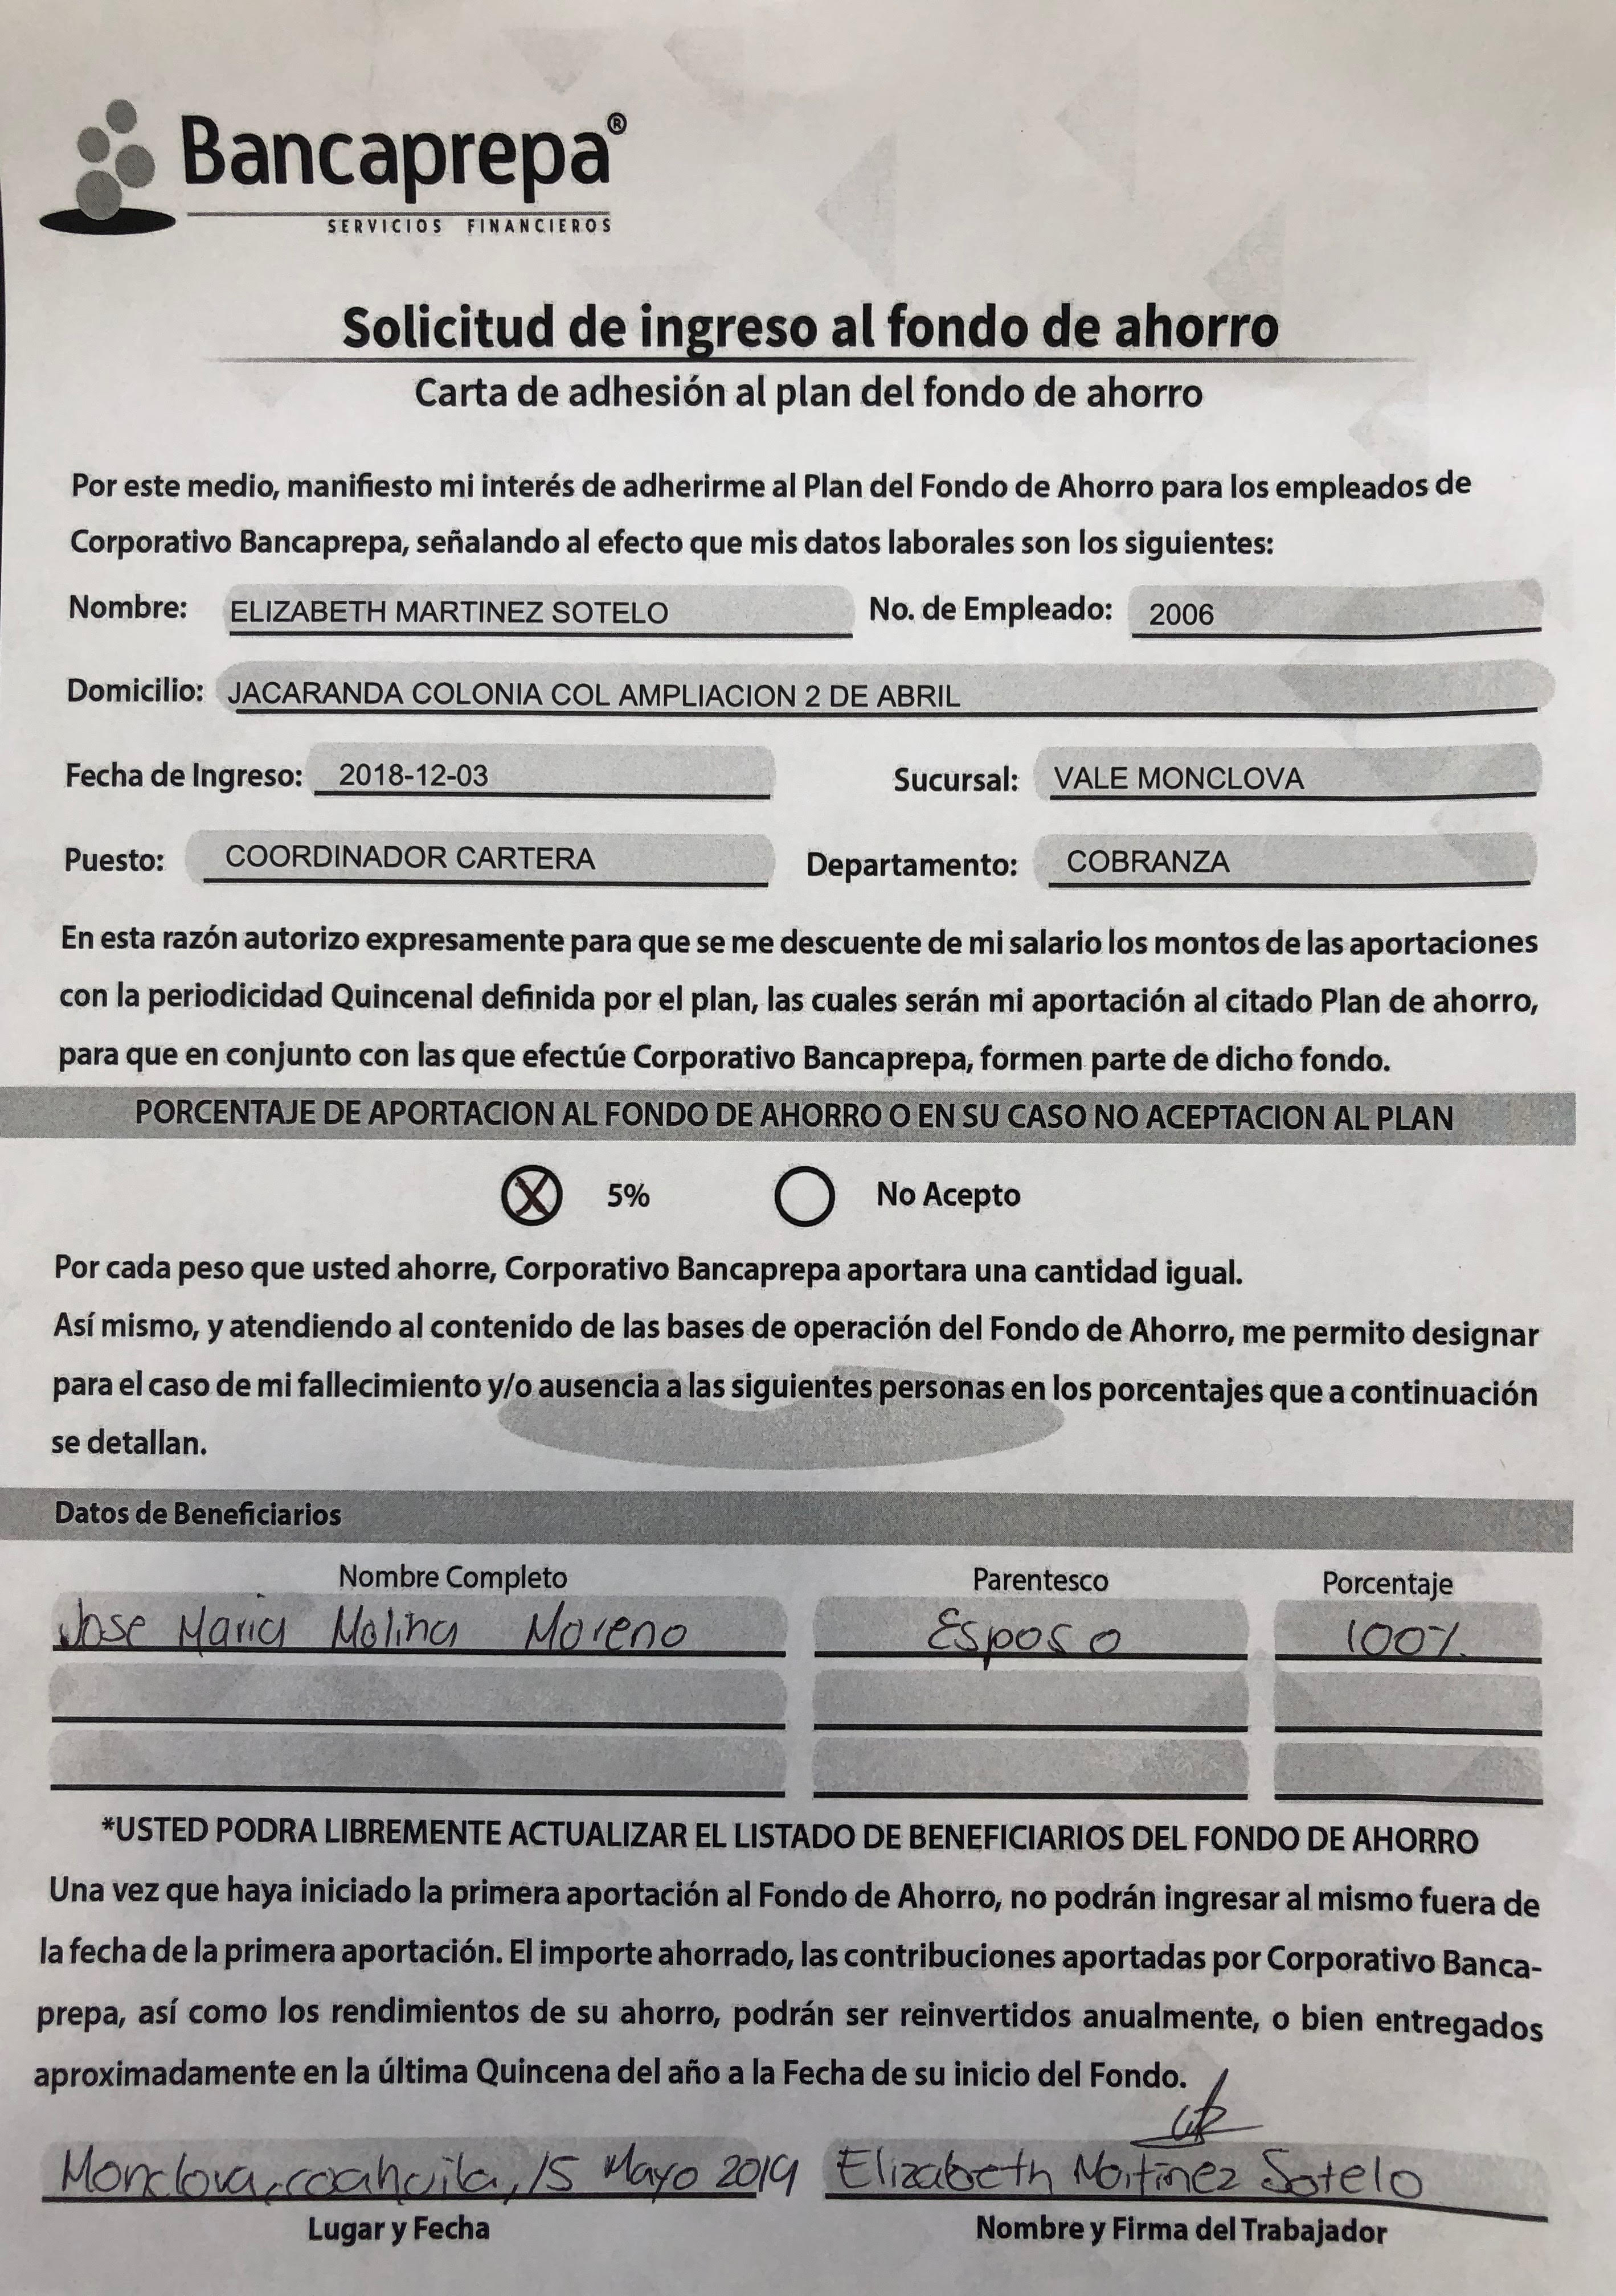 Bancaprepa®
SERVICIOS FINANCIEROS
Solicitud de ingreso al fondo de ahorro
Carta de adhesión al plan del fondo de ahorro
Por este medio, manifiesto mi interés de adherirme al Plan del Fondo de Ahorro para los empleados de
Corporativo Bancaprepa, señalando al efecto que mis datos laborales son los siguientes:
Nombre: ELIZABETH MARTINEZ SOTELO No. de Empleado: 2006
Domicilio: JACARANDA COLONIA COL AMPLIACION 2 DE ABRIL
Fecha de Ingreso: 2018-12-03 Sucursal: VALE MONCLOVA
Puesto: COORDINADOR CARTERA Departamento: COBRANZA
En esta razón autorizo expresamente para que se me descuente de mi salario los montos de las aportaciones
con la periodicidad Quincenal definida por el plan, las cuales serán mi aportación al citado Plan de ahorro,
para que en conjunto con las que efectúe Corporativo Bancaprepa, formen parte de dicho fondo.
PORCENTAJE DE APORTACION AL FONDO DE AHORRO O EN SU CASO NO ACEPTACION AL PLAN
X 5% No Acepto
Por cada peso que usted ahorre, Corporativo Bancaprepa aportara una cantidad igual.
Así mismo, y atendiendo al contenido de las bases de operación del Fondo de Ahorro, me permito designar
para el caso de mi fallecimiento y/o ausencia a las siguientes personas en los porcentajes que a continuación
se detallan.
Datos de Beneficiarios
Nombre Completo Parentesco Porcentaje
Jose Maria Molina Moreno Esposo 100%
*USTED PODRA LIBREMENTE ACTUALIZAR EL LISTADO DE BENEFICIARIOS DEL FONDO DE AHORRO
Una vez que haya iniciado la primera aportación al Fondo de Ahorro, no podrán ingresar al mismo fuera de
la fecha de la primera aportación. El importe ahorrado, las contribuciones aportadas por Corporativo Banca-
prepa, así como los rendimientos de su ahorro, podrán ser reinvertidos anualmente, o bien entregados
aproximadamente en la última Quincena del año a la Fecha de su inicio del Fondo.
Monclova, coahuila, 15 Mayo 2019 Elizabeth Martinez Sotelo
Lugar y Fecha Nombre y Firma del Trabajador